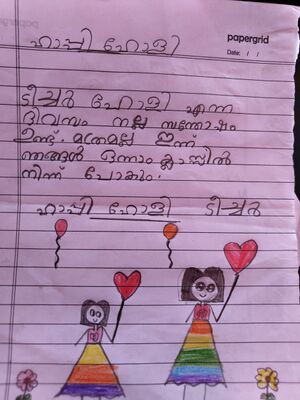 papergrid
Date: / /
ഹാപ്പി ഹോളി
ടീച്ചർ ഹോളി എന്ന
ദിവസം നല്ല സന്തോഷം
ഉണ്ട്. മത്രമല്ല ഇന്ന്
ഞങ്ങൾ ഒന്നാം ക്ലാസ്സിൽ
നിന്ന് പോകും.
ഹാപ്പി ഹോളി ടീച്ചർ